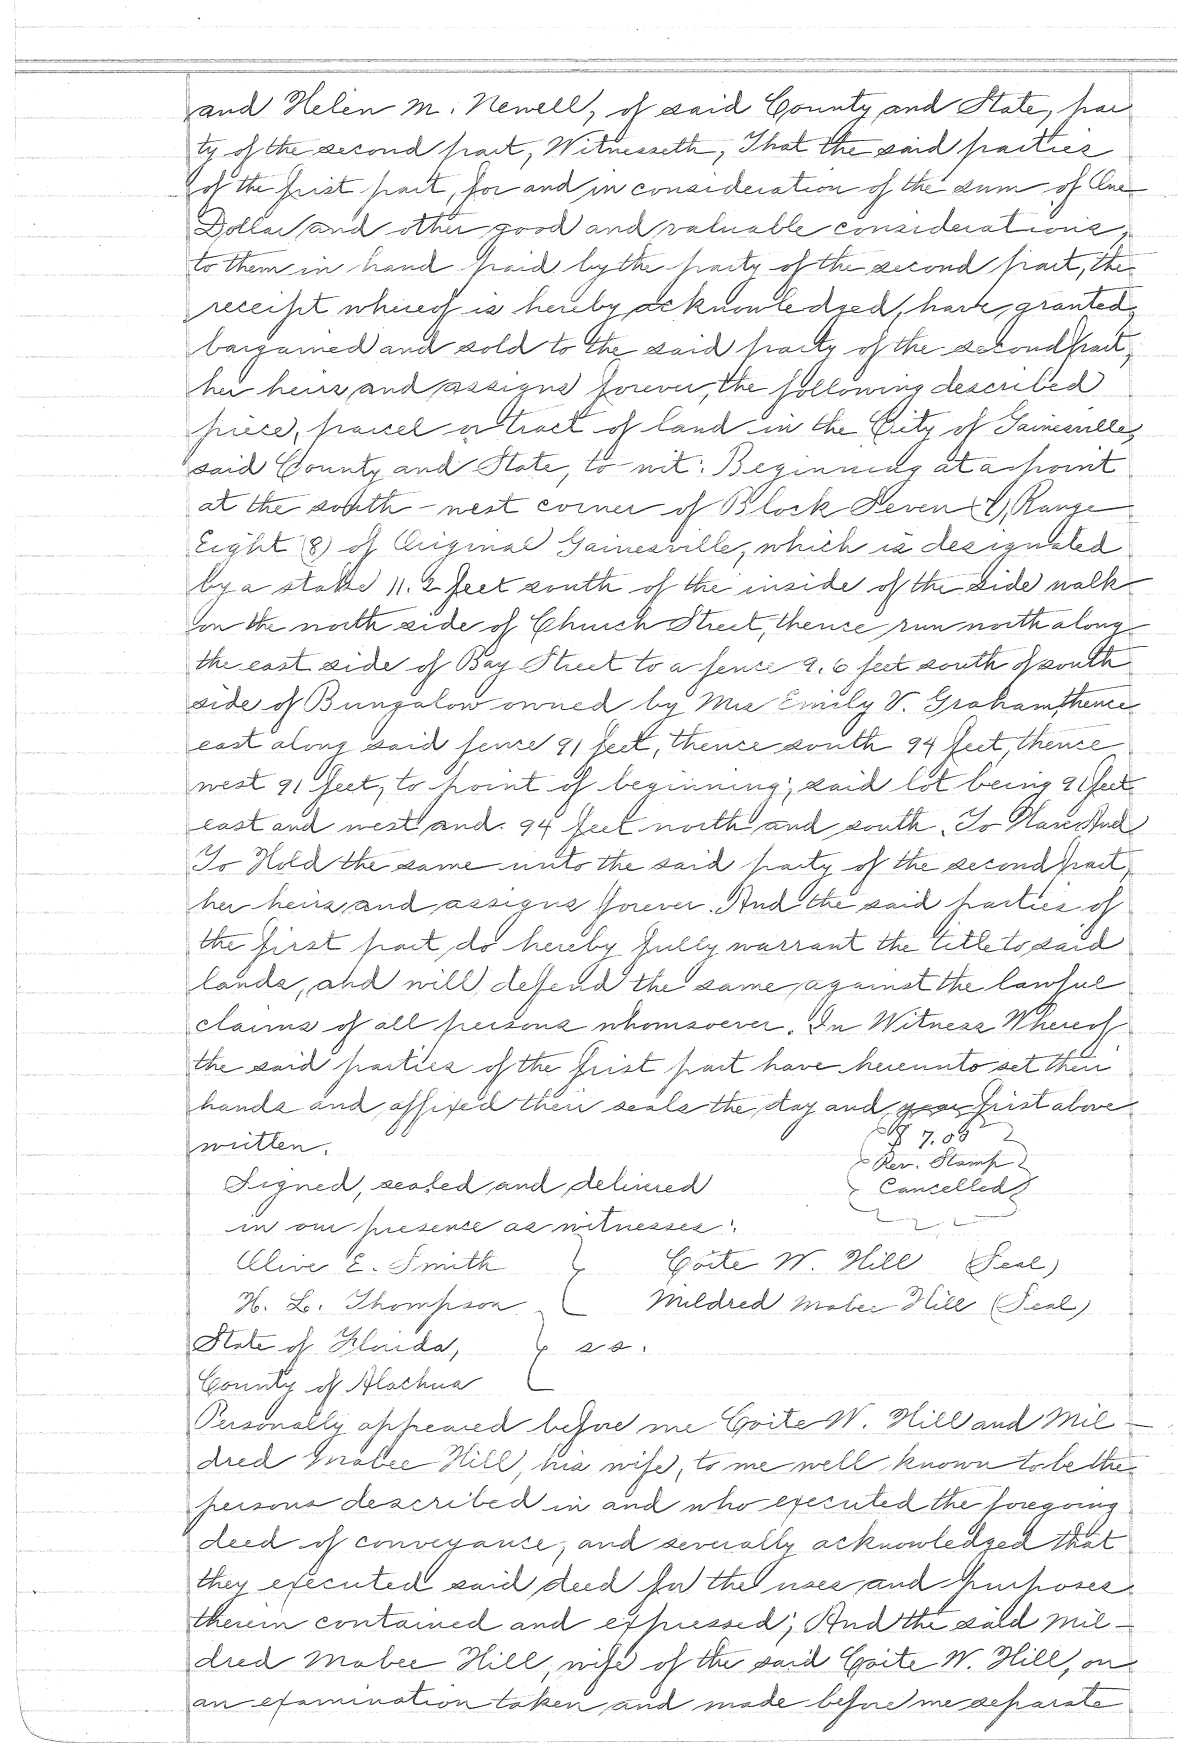 and Helen M. Newell, of said County and State, par
ty of the second part, Witnesseth, That the said parties
of the first part, for and in consideration of the sum of One
Dollar and other good and valuable considerations,
to them in hand paid by the party of the second part, the
receipt whereof is hereby acknowledged, have granted,
bargained and sold to the said party of the second part,
her heirs and assigns forever, the following described
piece, parcel or tract of land in the City of Gainesville,
said County and State, to-wit: Beginning at a point
at the south-west corner of Block Seven (7), Range
Eight (8) of Original Gainesville, which is designated
by a stake 11.2 feet south of the inside of the side walk
on the north side of Church Street, thence run north along
the east side of Bay Street to a fence 9.6 feet south of south
side of Bungalow owned by Mrs Emily V. Graham, thence
east along said fence 91 feet, thence south 94 feet, thence
west 91 feet, to point of beginning; said lot being 91 feet
east and west and 94 feet north and south. To Have And
To Hold the same unto the said party of the second part,
her heirs and assigns forever. And the said parties of
the first part do hereby fully warrant the title to said
lands, and will defend the same against the lawful
claims of all persons whomsoever. In Witness Whereof
the said parties of the first part have hereunto set their
hands and affixed their seals the day and year first above
written.
$7.00
Rev. Stamp
Signed, sealed and delivered
Cancelled
in our presence as witnesses:
Olive E. Smith } Coite W. Hill (Seal)
H. L. Thompson Mildred Mabee Hill (Seal)
State of Florida, } ss.
County of Alachua
Personally appeared before me Coite W. Hill and Mil-
dred Mabee Hill, his wife, to me well known to be the
persons described in and who executed the foregoing
deed of conveyance, and severally acknowledged that
they executed said deed for the uses and purposes
therein contained and expressed; And the said Mil-
dred Mabee Hill, wife of the said Coite W. Hill, on
an examination taken and made before me separate